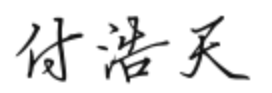 付浩天